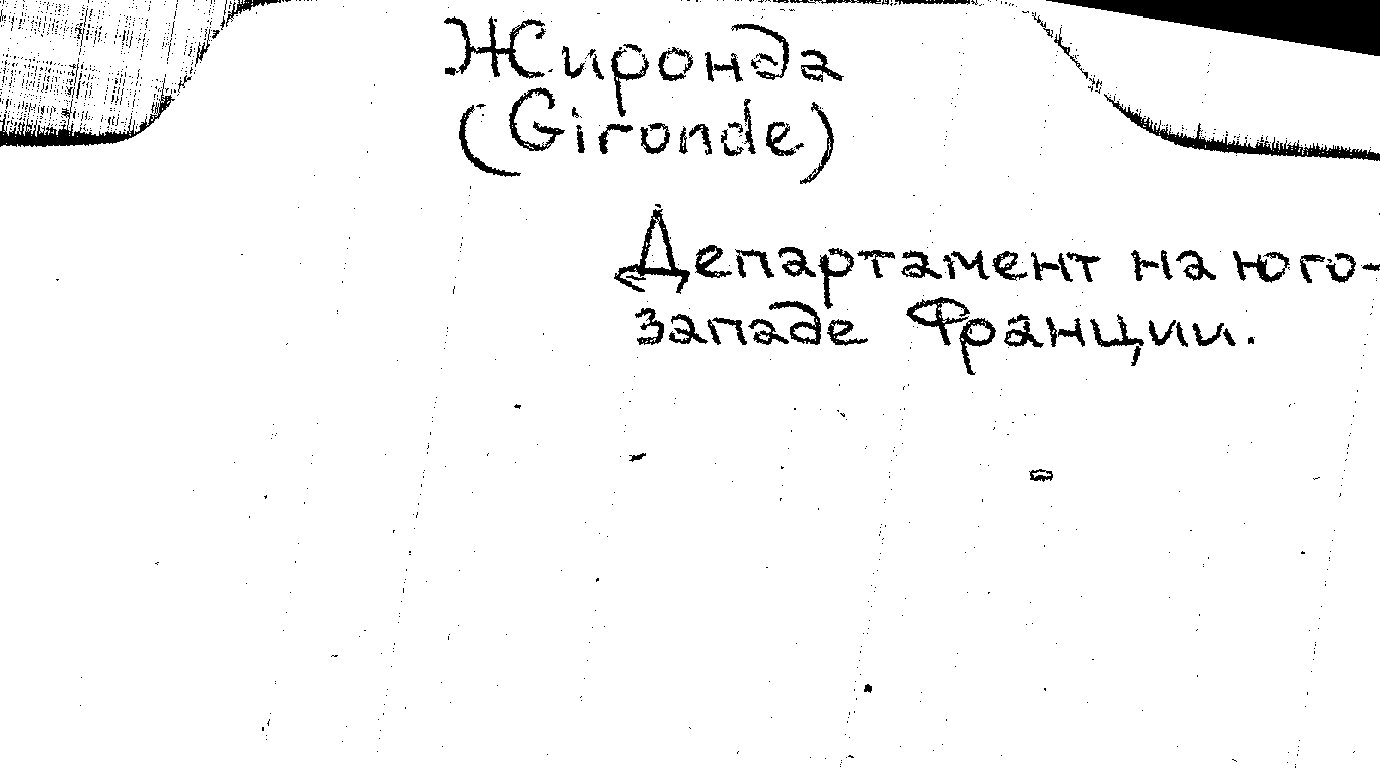 Жиронда
(Gironde)
Департамент на юго-
западе Франции.